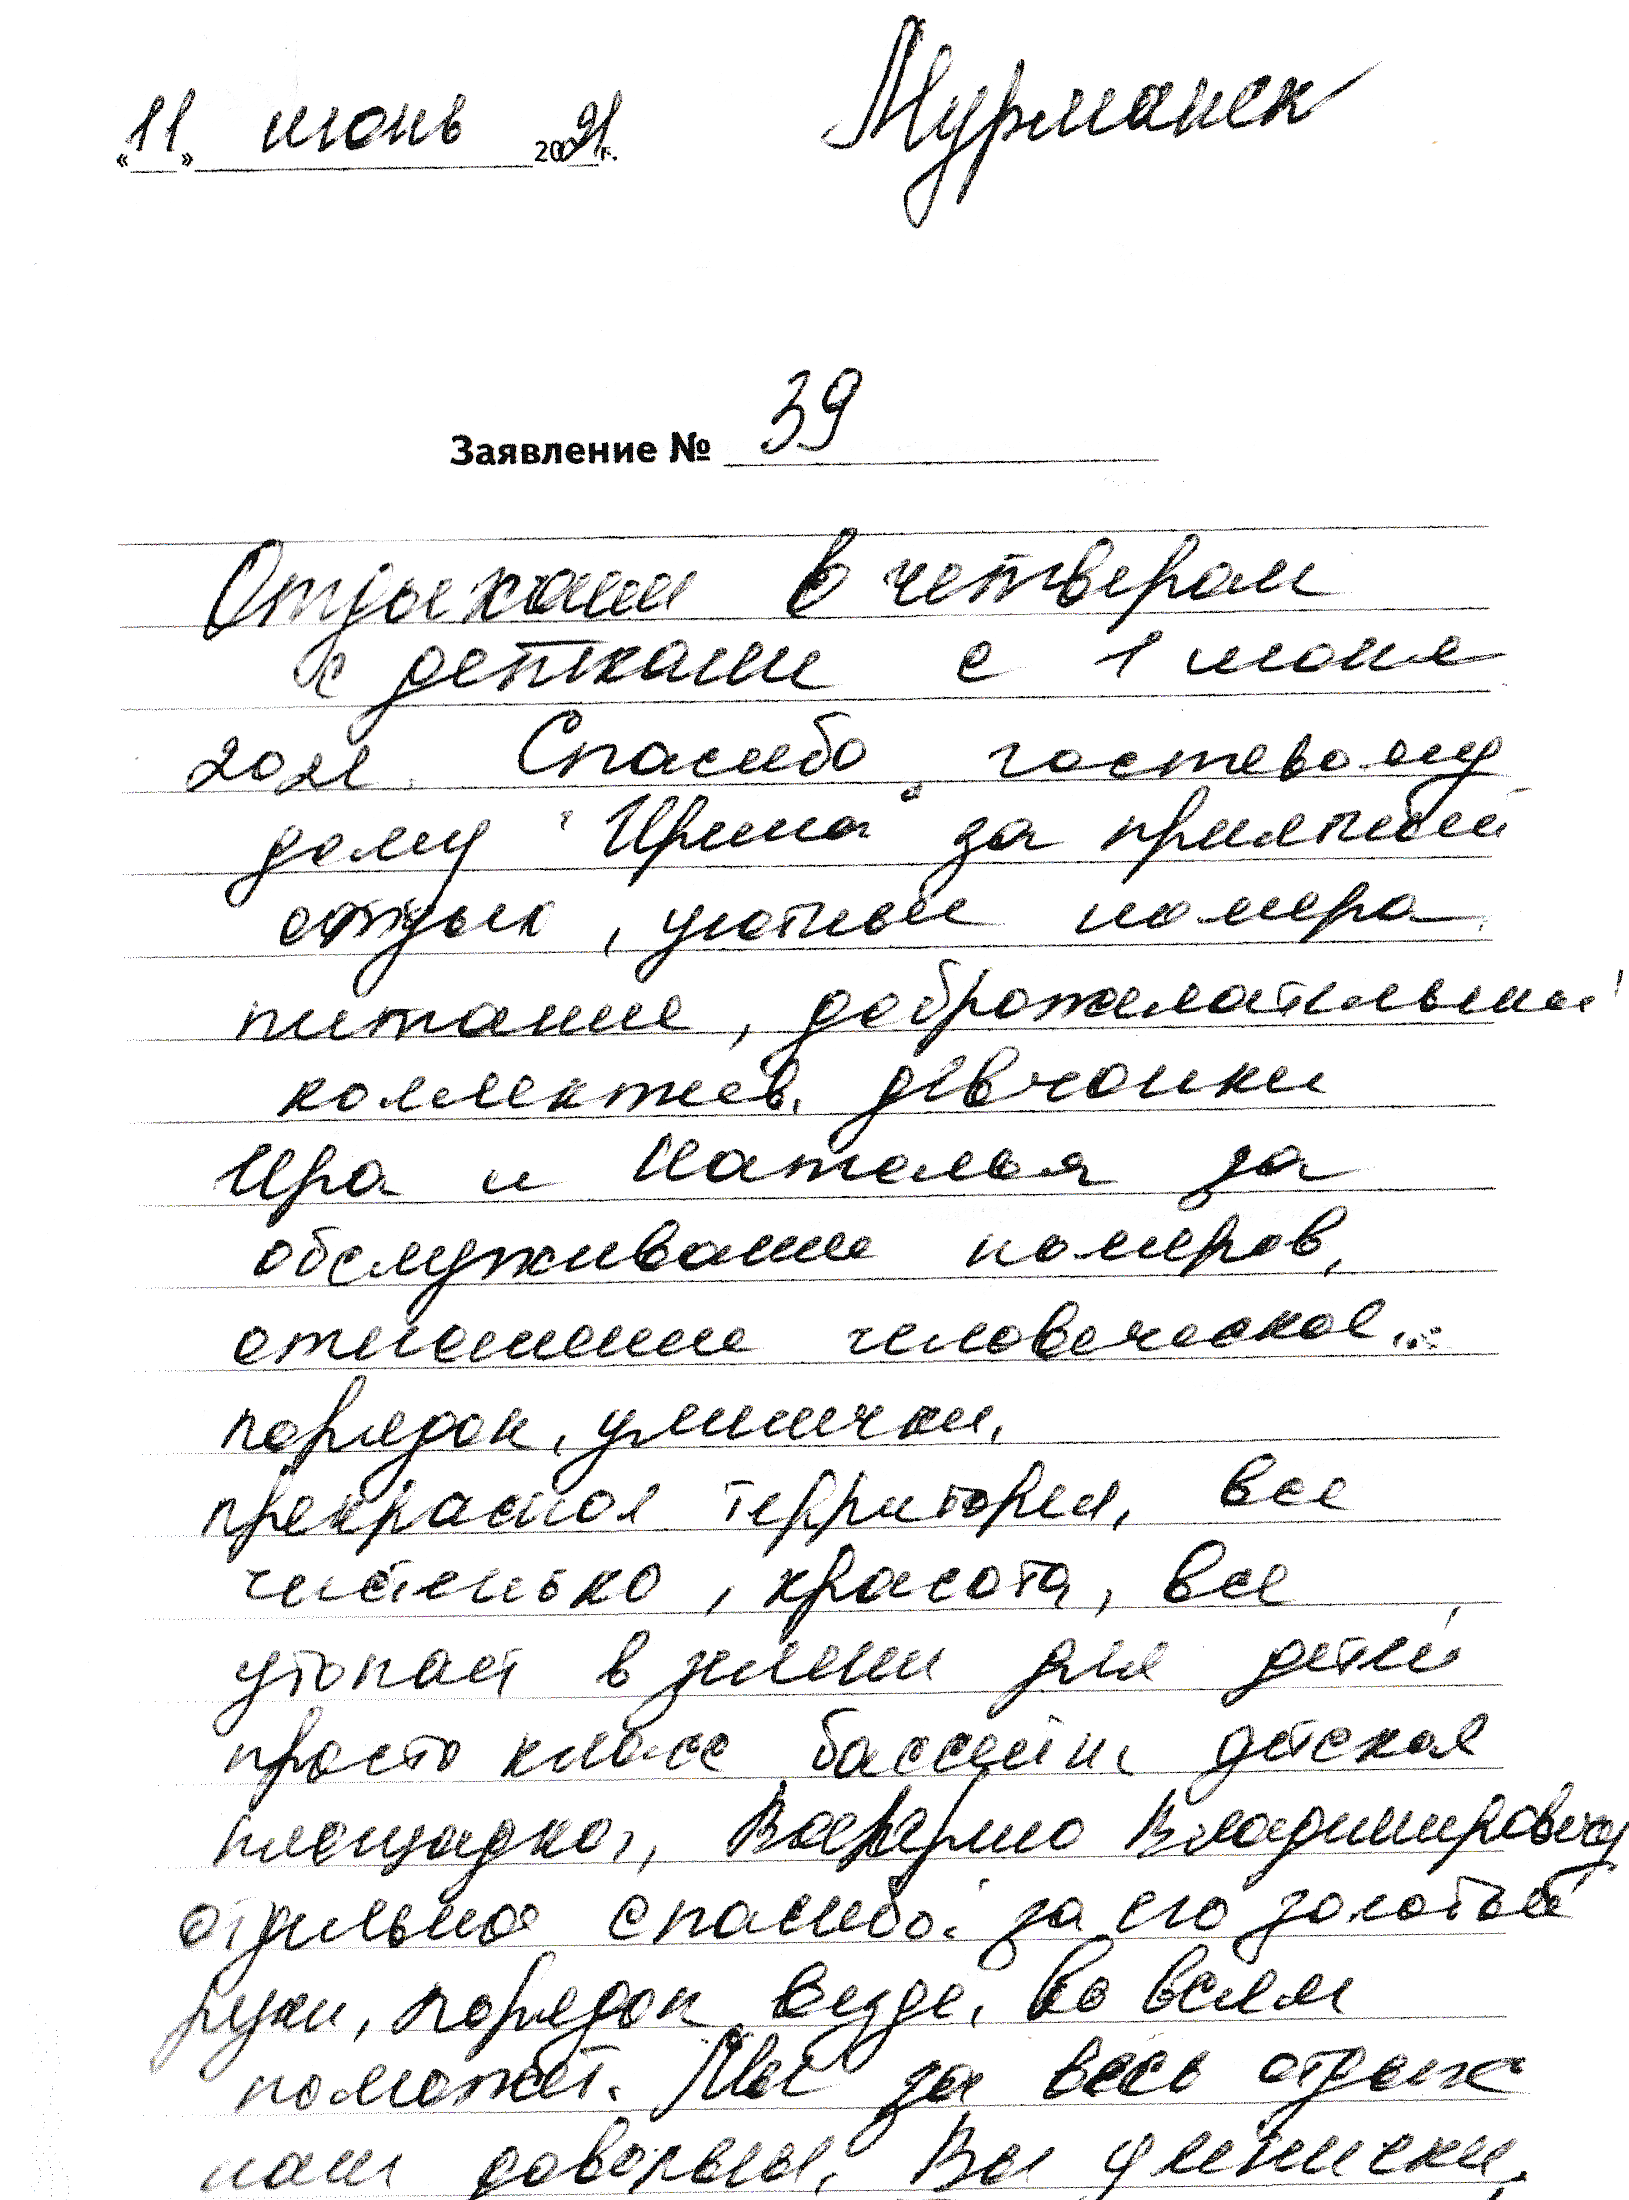 «11» июнь 2021г. Мурманск
Заявление № 39
Отдыхали в четвером
с детками с 1 июня
2021. Спасибо гостевому
дому "Ирина" за приятный
отдых, уютные номера
питание, доброжелательный
коллектив. девчонки
Ира и Наталья за
обслуживание номеров,
отношение человеческое...
порядок, умнички.
прекрасная территория, все
чистенько, красота, все
утопает в зелени для детей
просто класс бассейн, детская
площадка, Владимировичу
отдельное спасибо за его золотые
руки, порядок везде, во всем
поможет. Мы за весь отдых
наш довольны. Вы умнички.